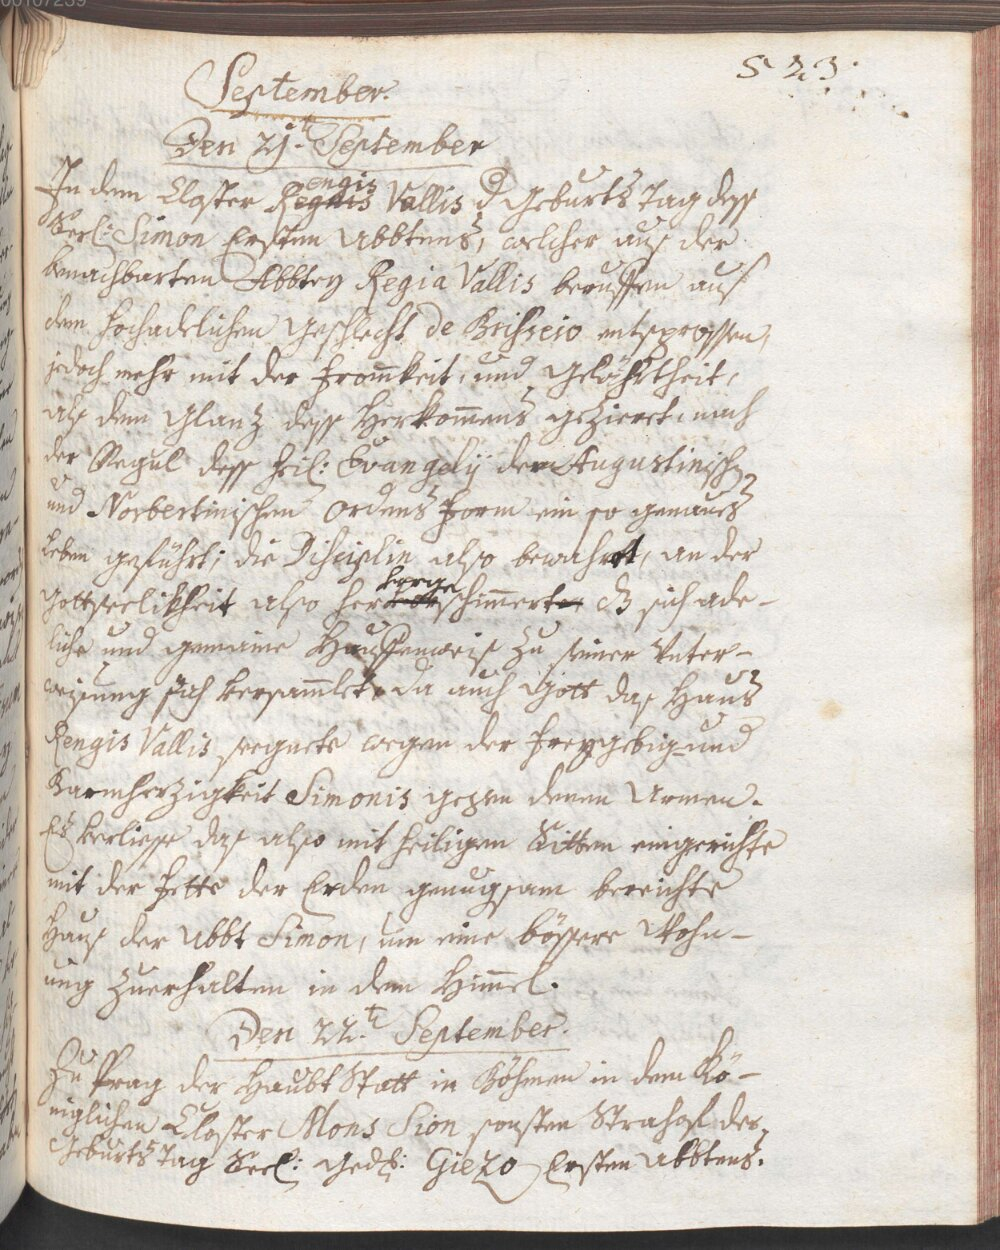 00107239
523.
September.
Den 21.t September
In dem Closter Rengis Vallis d Geburts Tag dess
Seel: Simon Ersten Abbtens, welcher auß der
benachbarten Abbtey Regia Vallis beruffen auß
dem hochadelichen Geschlecht de entsprossen,
jedoch mehr mit der From̄keit, und Gelährtheit,
alß dem Glantz dess Herkom̄ens gezieret, nach
der Regul dess heil: Evangelij der Augustinisch
und Norbertinischen Ordens Form ein so genaues
Leben geführt; die Disciplin also bewahrt, an der
Gottseelikheit also hervorgeschimmert dz sich ade-
liche und gemaine Hauffenweiß zu seiner Unter-
weisung sich versam̄let. Da auch Gott daß Hauß
Rengis Vallis seegnete wegen der Freygebig- und
Barmherzigkeit Simonis gegen denen Armen.
Es verliesse daß also mit heiligen Sitten eingerichte
mit der Fette der Erden genugsam bereichte
Hauß der Abbt Simon, um eine bössere Wohn-
ung zuerhalten in dem Him̄el.
Den 22.t September.
Zu Prag der Haubt Statt in Böhmen in dem Kö-
niglichen Closter Mons Sion sonsten Strahof der
Geburts Tag Seel: Ged: Giezo Ersten Abbtens.